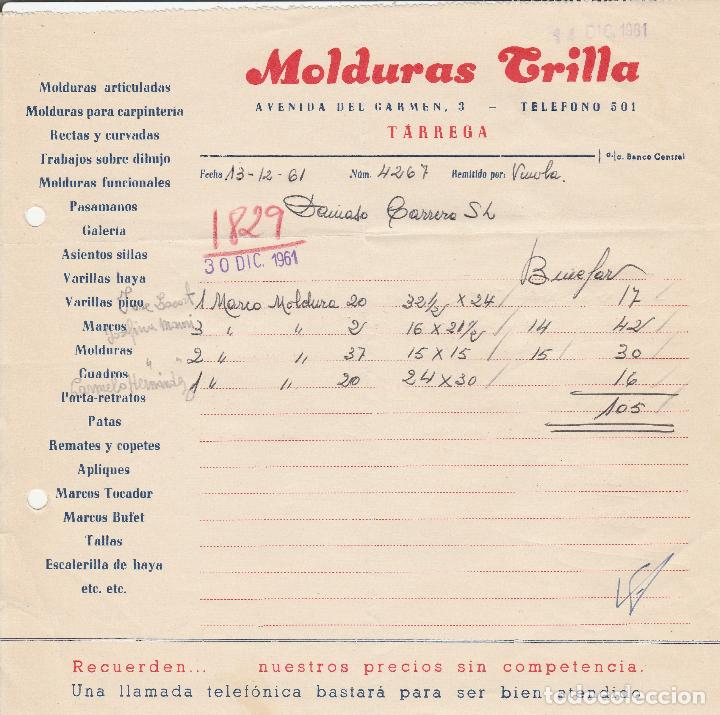 14 DIC. 1961
Molduras Trilla
AVENIDA DEL CARMEN, 3 — TELEFONO 501
TÁRREGA
a/c. Banco Central
Fecha 13-12-61 Núm. 4267 Remitido por: Vinola.
Damaso Carrera SL
1829
30 DIC. 1961
Binefar
1 Marco Moldura 20 32 1/2 x 24 17
3 " " 2 16 x 21 1/2 14 42
2 " " 37 15 x 15 15 30
1 " " 20 24 x 30 16
105
Molduras articuladas
Molduras para carpintería
Rectas y curvadas
Trabajos sobre dibujo
Molduras funcionales
Pasamanos
Galería
Asientos sillas
Varillas haya
Varillas pino
Marcos
Molduras
Cuadros
Porta-retratos
Patas
Remates y copetes
Apliques
Marcos Tocador
Marcos Bufet
Tallas
Escalerilla de haya
etc. etc.
Jose
Josefina
" "
Carmelo Hernindez
Recuerden... nuestros precios sin competencia.
Una llamada telefónica bastará para ser bien atendido.
todocoleccion.net